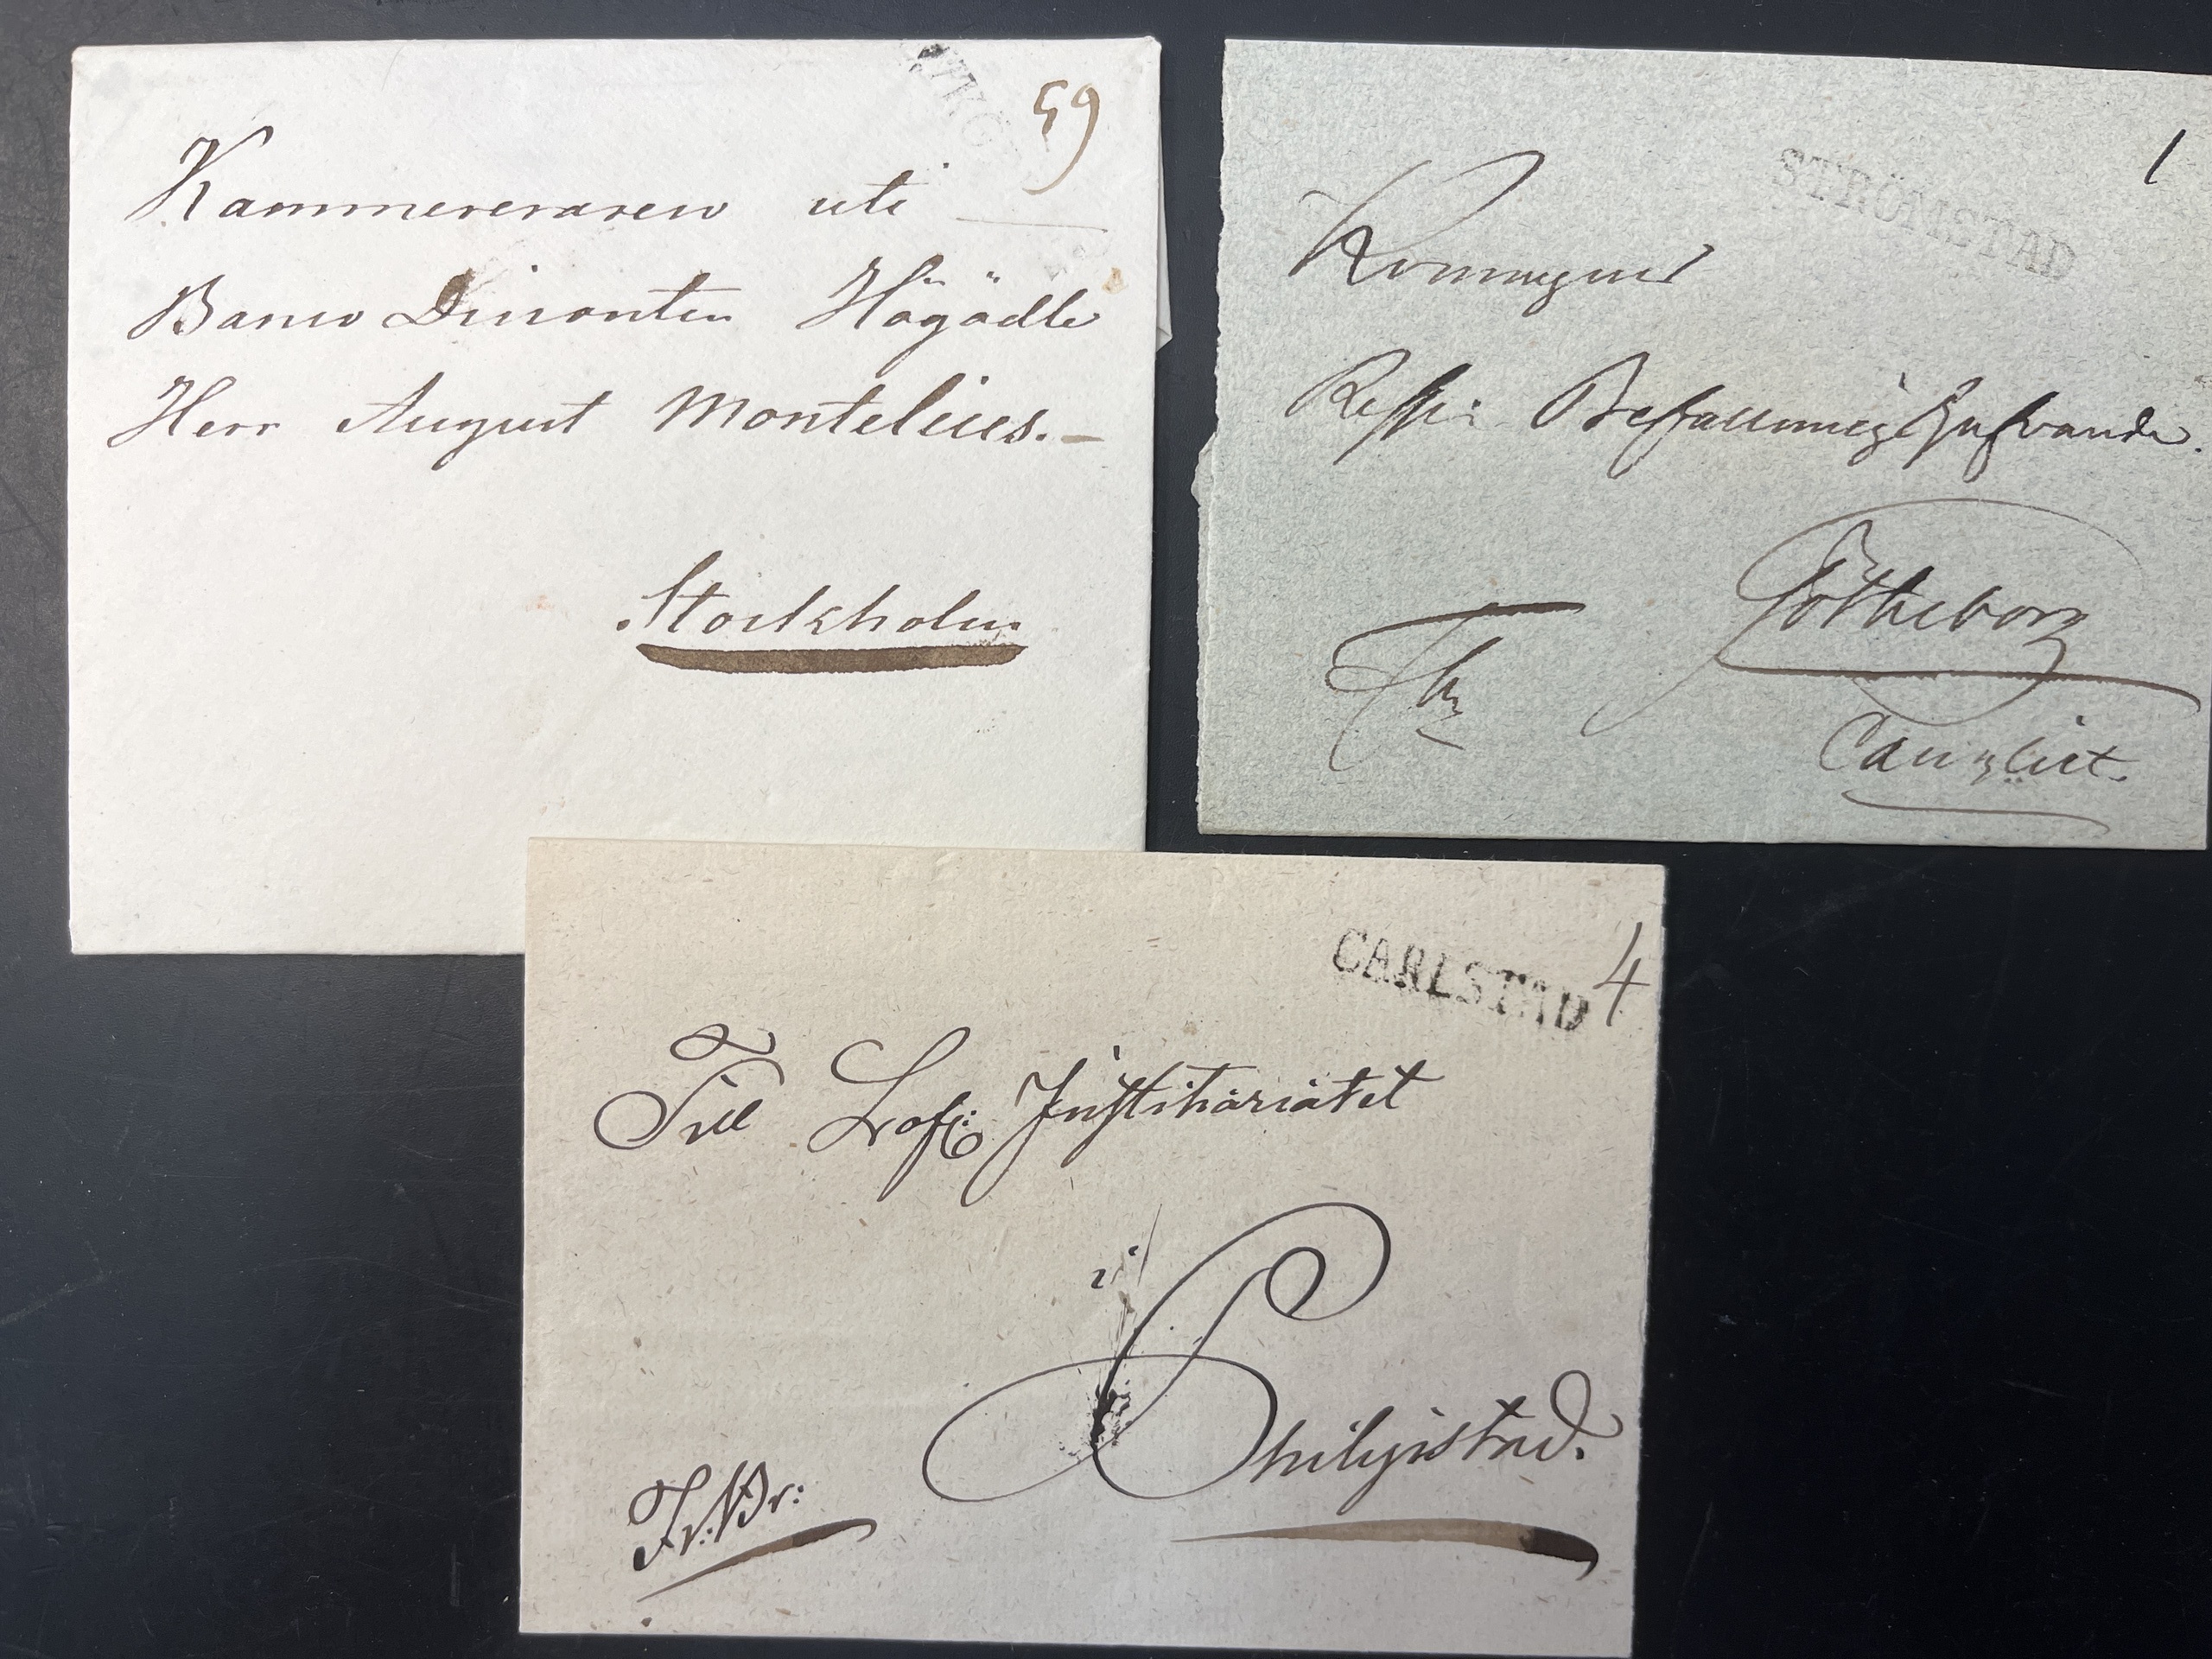 59
Kammereraren uti
Banco Disconten Högädle
Herr August Montelius.
Stockholm
STRÖMSTAD
1
Konungens
Respi: Befallningshafvande.
Götheborg
Canzliet.
CARLSTAD
4
Till Lofl: Justitiariatet
i
Philipstad.
Fr: Br: